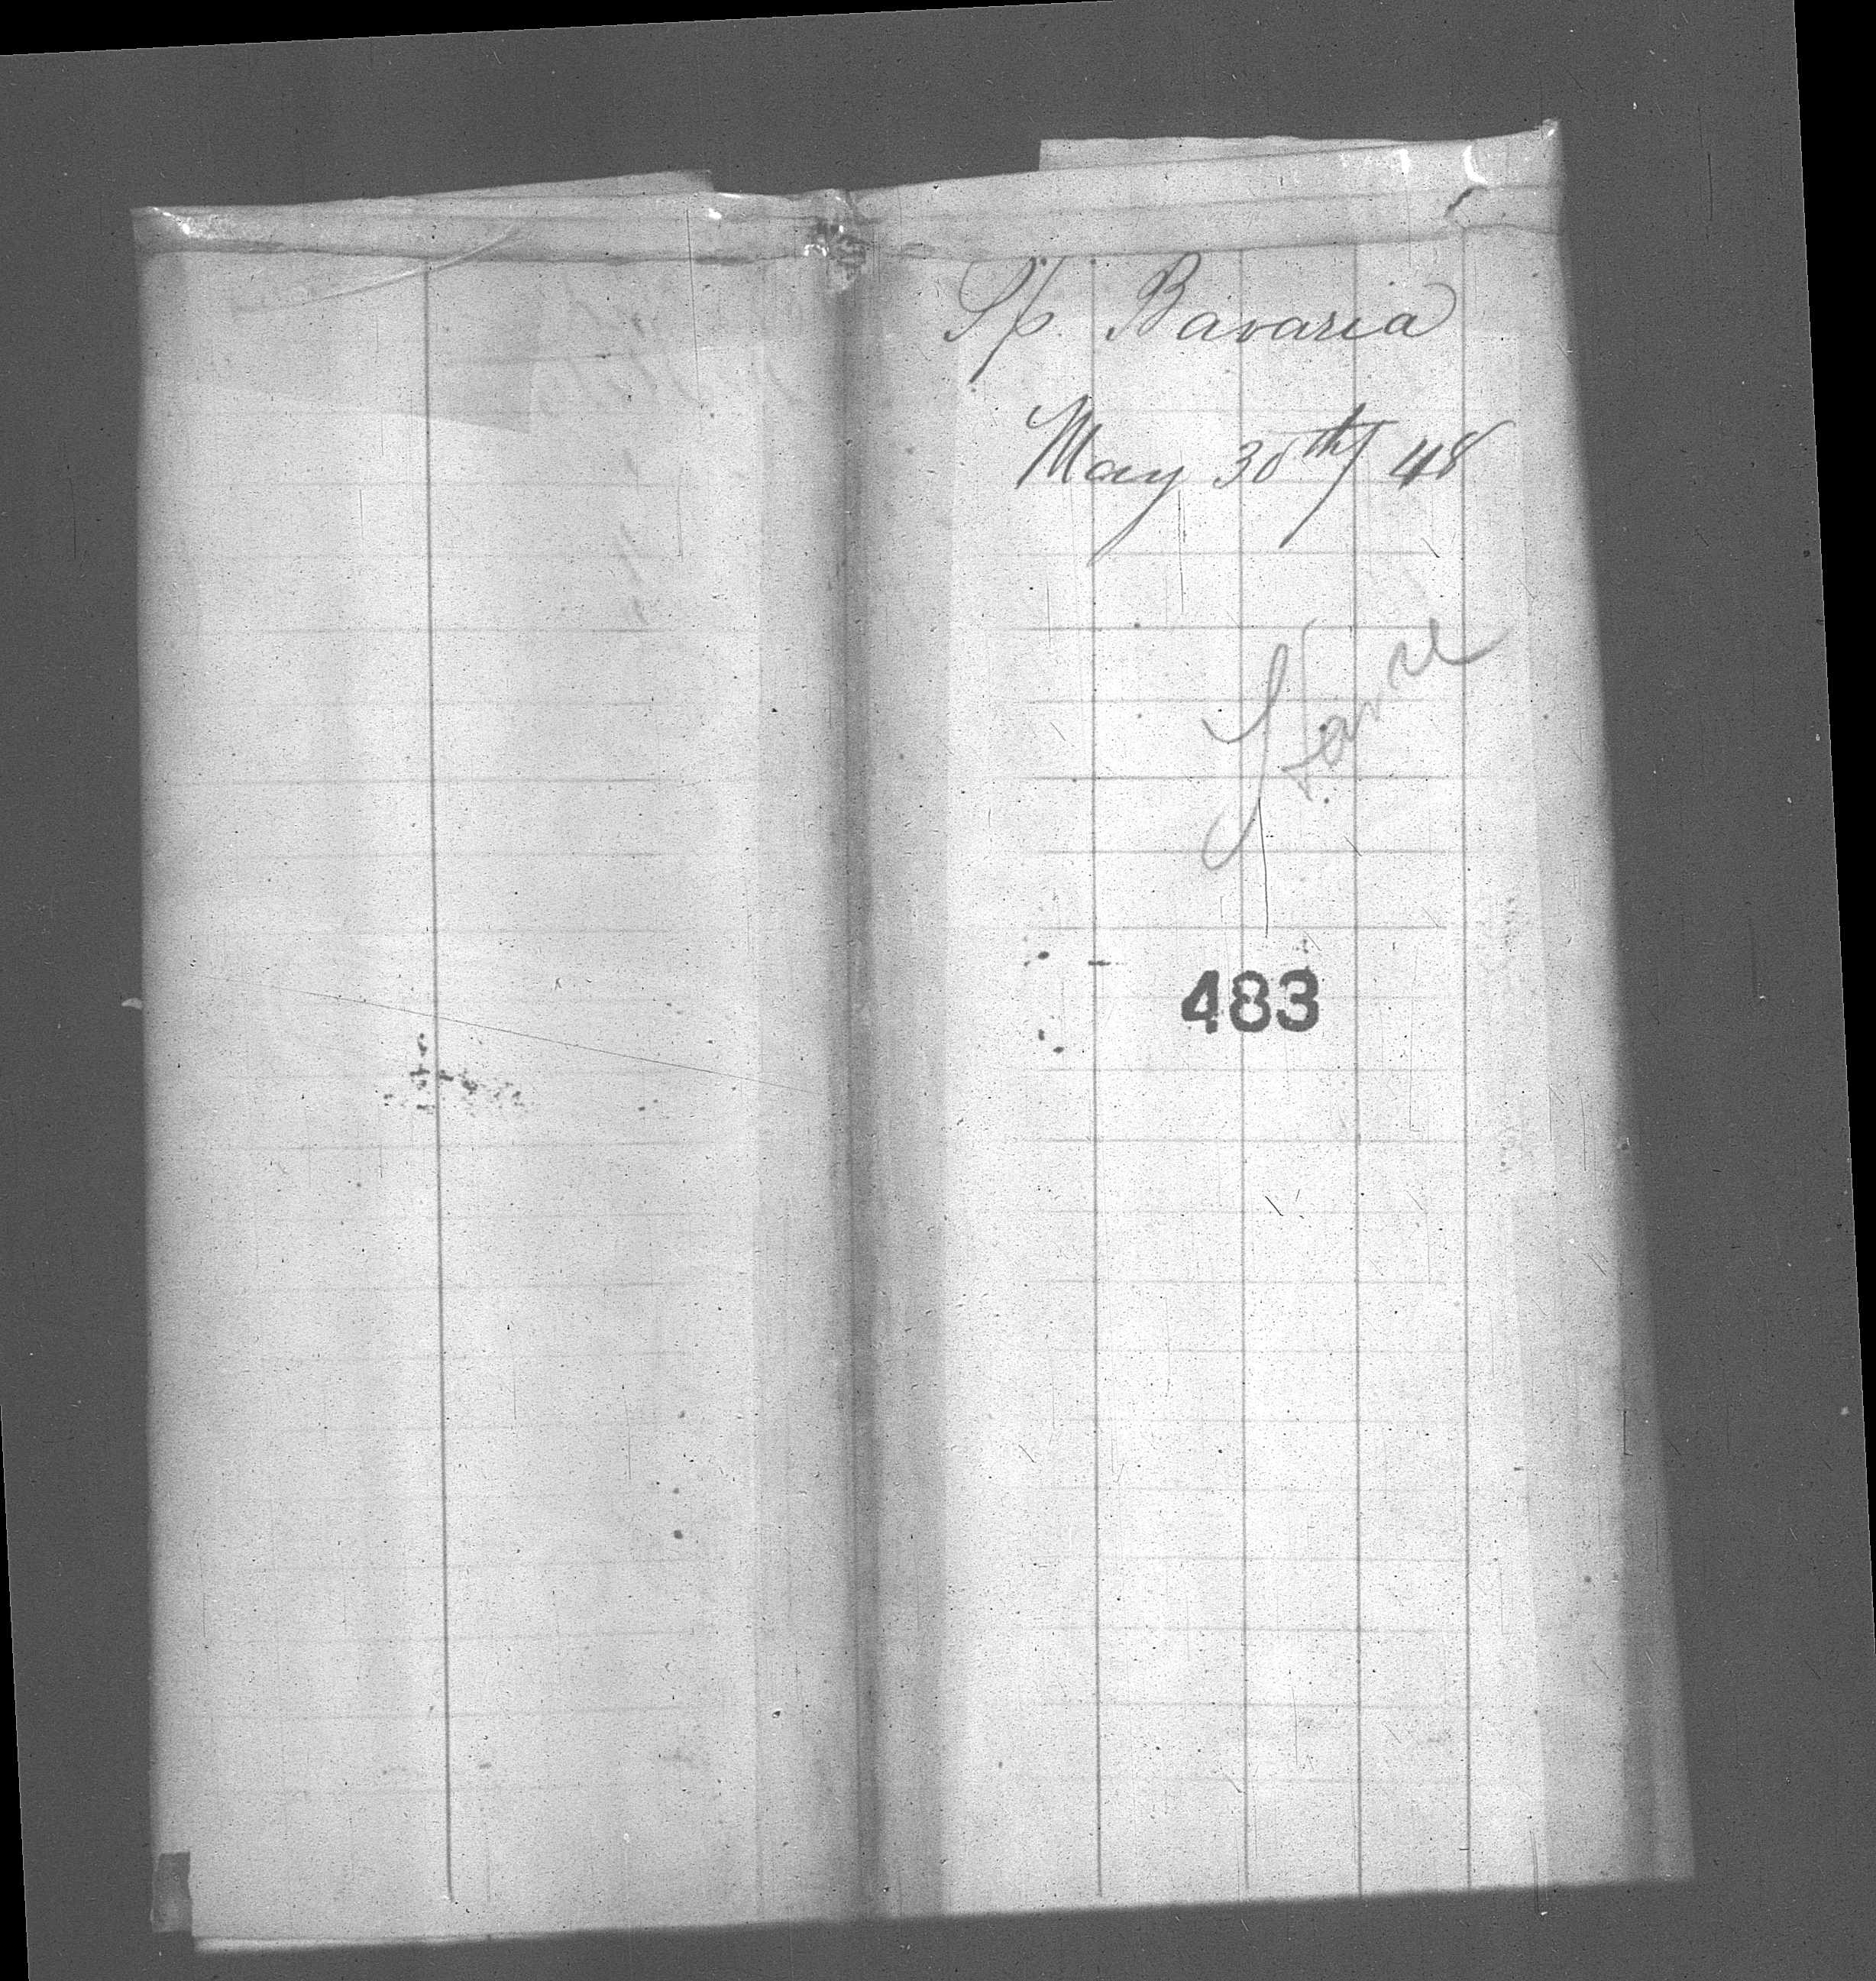 S/p. Bavaria
May 30th/48
Havre
483